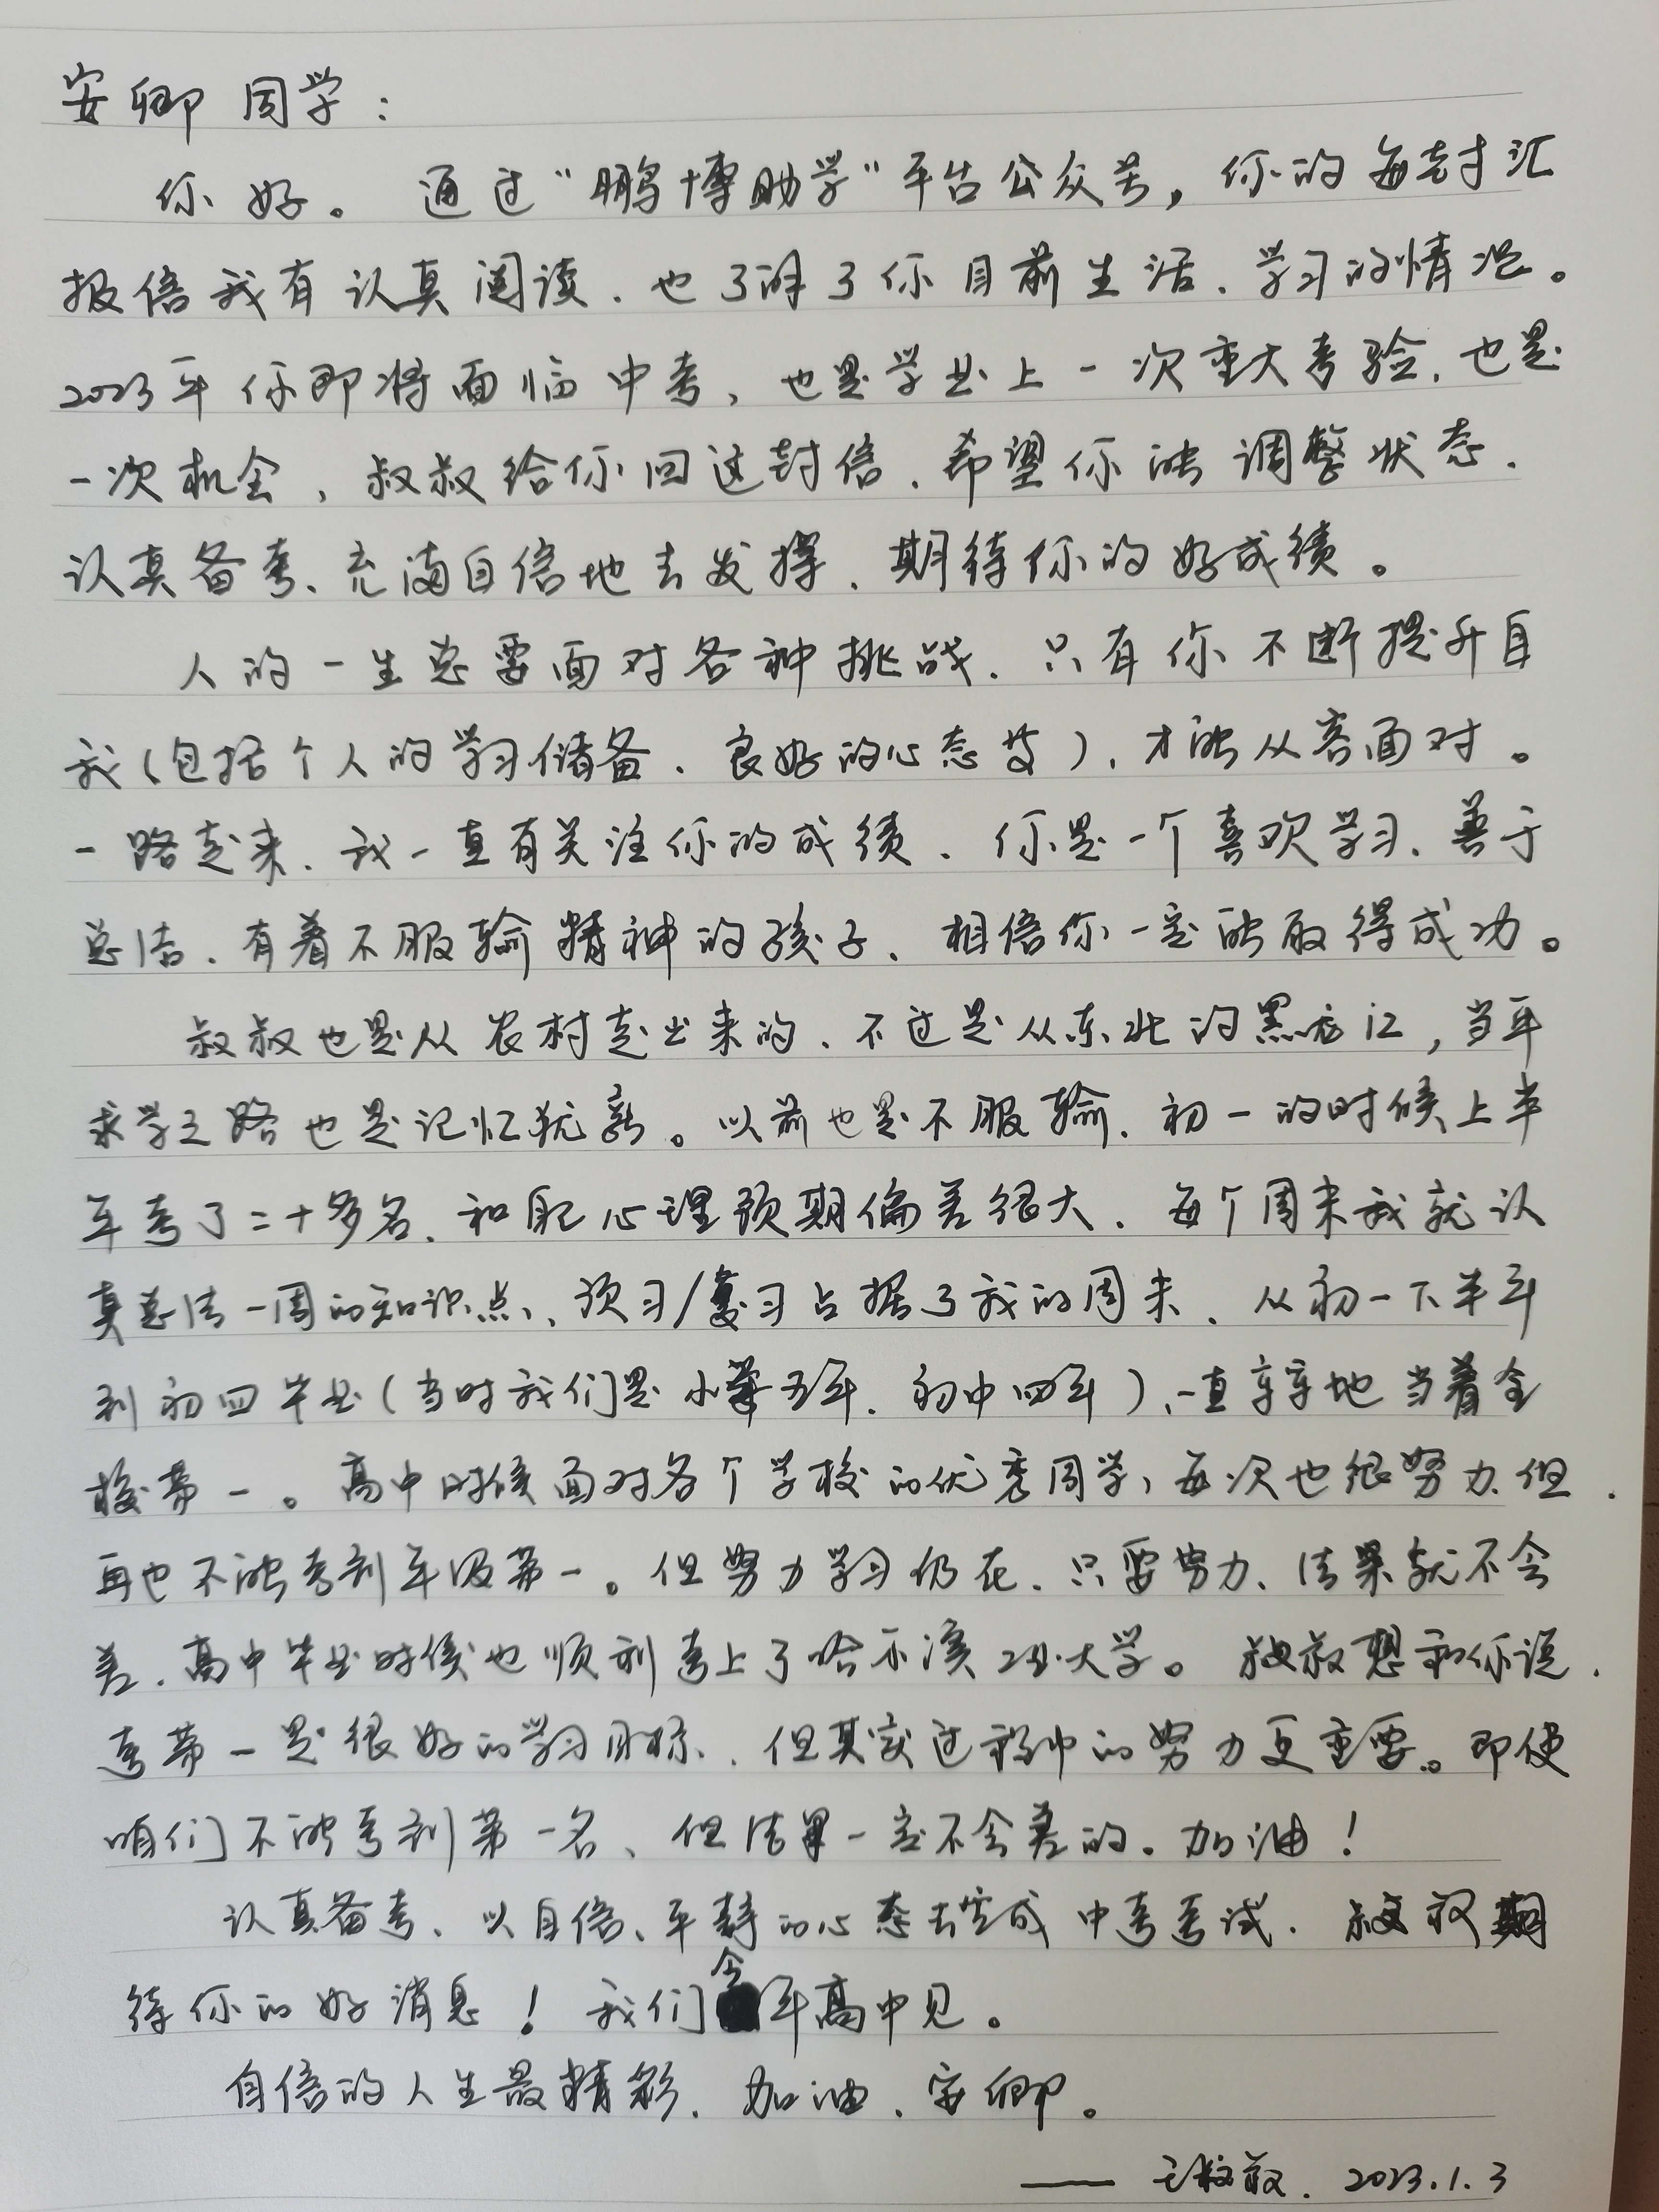 安卿同学：
你好。通过“鹏博助学”平台公众号，你的每封汇
报信我有认真阅读，也了解了你目前生活、学习的情况。
2023年你即将面临中考，也是学业上一次重大考验，也是
一次机会，叔叔给你回这封信，希望你能调整状态，
认真备考、充满自信地去发挥，期待你的好成绩。
人的一生总要面对各种挑战，只有你不断提升自
我（包括个人的学习储备、良好的心态等），才能从容面对。
一路走来，我一直有关注你的成绩，你是一个喜欢学习、善于
总结、有着不服输精神的孩子，相信你一定能取得成功。
叔叔也是从农村走出来的，不过是从东北的黑龙江，当年
求学之路也是记忆犹新。以前也是不服输，初一的时候上半
年考了二十多名，和自己心理预期偏差很大，每个周末我就认
真总结一周的知识点、预习/复习占据了我的周末，从初一下半年
到初四毕业（当时我们是小学五年，初中四年），一直牢牢地当着全
校第一。高中时候面对各个学校的优秀同学，每次也很努力，但
再也不能考到年级第一。但努力学习仍在，只要努力、结果就不会
差，高中毕业时候也顺利考上了哈尔滨工业大学。叔叔想和你说，
考第一是很好的学习目标，但其实过程中的努力更重要。即使
咱们不能考到第一名、但结果一定不会差的。加油！
认真备考、以自信、平静的心态去完成中考考试，叔叔期
待你的好消息！我们今年高中见。
自信的人生最精彩，加油，安卿。
—— 王叔叔，2023.1.3